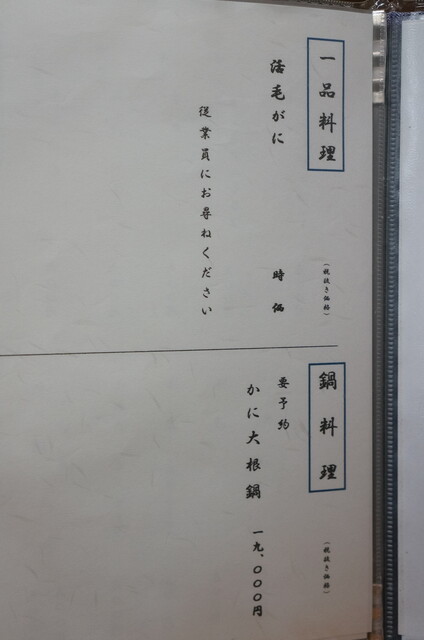 一品料理
（税抜き価格）
活毛がに
時価
従業員にお尋ねください
鍋料理
（税抜き価格）
要予約
かに大根鍋
一九、〇〇〇円